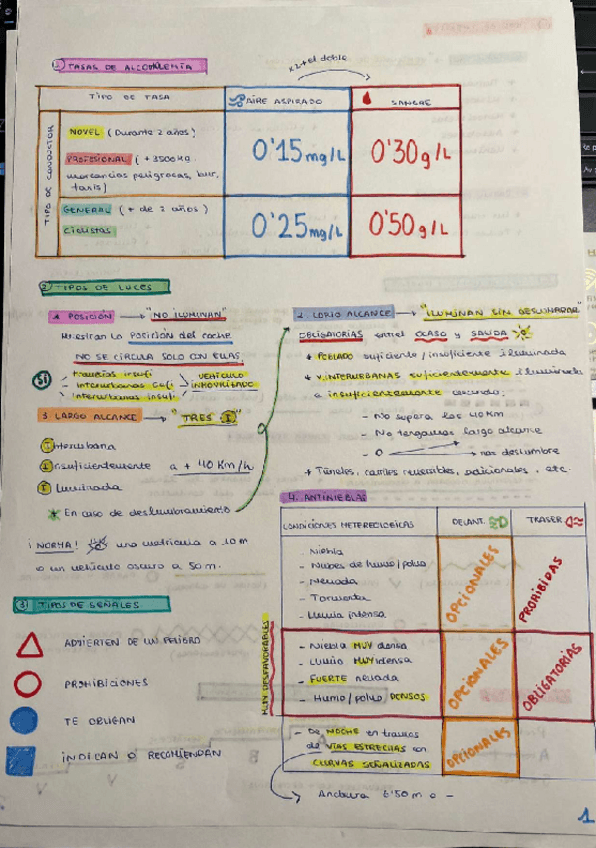 ① TASAS DE ALCOHOLEMIA
x2 el doble
TIPO DE TASA
AIRE ASPIRADO
SANGRE
TIPO DE CONDUCTOR
NOVEL (Durante 2 años)
PROFESIONAL (+3500 kg
mercancias peligrosas, bus,
taxis)
0'15 mg/L
0'30 g/L
GENERAL (+ de 2 años)
ciclistas
0'25 mg/L
0'50 g/L
② TIPOS DE LUCES
1. POSICIÓN → "NO ILUMINAN"
Muestran la posición del coche
NO SE CIRCULA SOLO CON ELLAS
SÍ
insufi
interurbanas sufi
interurbanas insufi
VEHÍCULO
INMOVILIZADO
3. LARGO ALCANCE → "TRES I"
Interurbana
Insuficientemente a + 40 Km/h
Iluminada
* En caso de deslumbramiento
¡NORMA! una matricula a 10 m
o un vehículo oscuro a 50 m.
2. CORTO ALCANCE → "ILUMINAN SIN DESLUMBRAR"
OBLIGATORIAS entre OCASO y SALIDA
* POBLADO suficiente/insoficiente iluminada
* V. INTERURBANAS suficientemente iluminada
o insuficientemente cuando:
- No supera los 40 Km
- No tengamos largo alcance
- O nos deslumbre
* Túneles, carriles reversibles, adicionales, etc.
4. ANTINIEBLAS
CONDICIONES METEREOLOGICAS
DELANT.
TRASER.
- Niebla
- Nubes de humo/polvo
- Nevada
- Tormenta
- Lluvia intensa
OPCIONALES
PROHIBIDAS
MUY DESFAVORABLES
- Niebla MUY densa
- Lluvia MUY densa
- FUERTE nevada
- Humo/polvo DENSOS
OPCIONALES
OBLIGATORIAS
- De NOCHE en tramos
de VÍAS ESTRECHAS con
CURVAS SEÑALIZADAS
OPCIONALES
Anchura 6'50 m o -
③ TIPOS DE SEÑALES
ADVIERTEN DE UN PELIGRO
PROHIBICIONES
TE OBLIGAN
INDICAN O RECOMIENDAN
1